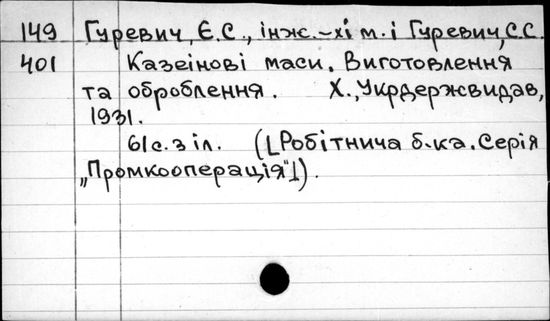 149 Гуревич, Є.С., інж.-хім. і Гуревич, С.С.
401 Казеінові маси. Виготовлення
та оброблення. Х., Укрдержвидав,
1931.
61с. з іл. ([Робітнича б-ка. Серія
„Промкооперація"]).